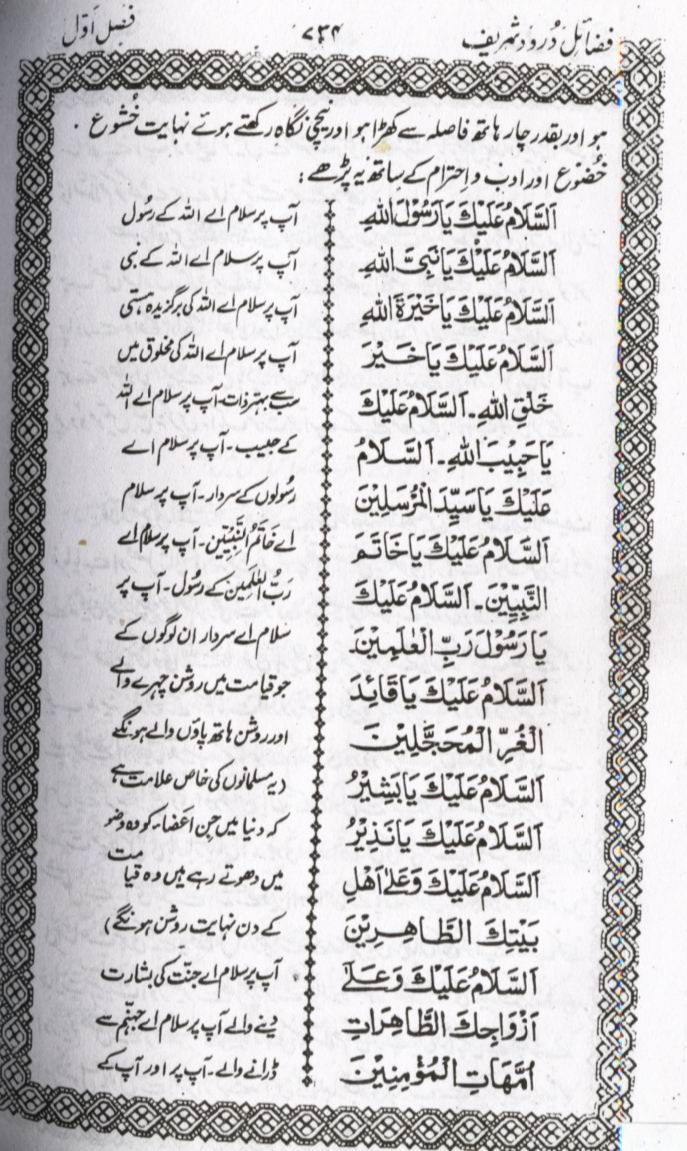 فضائل درود شریف
۷۳۴
فصل اوّل
ہو اور بقدر چار ہاتھ فاصلہ سے کھڑا ہو اور نیچی نگاہ رکھتے ہوئے نہایت خُشوع۔
خُضوع اور ادب و احترام کے ساتھ یہ پڑھے:
اَلسَّلَامُ عَلَيْكَ يَا رَسُوْلَ اللهِ
اَلسَّلَامُ عَلَيْكَ يَا نَبِيَّ اللهِ
اَلسَّلَامُ عَلَيْكَ يَا خَيْرَةَ اللهِ
اَلسَّلَامُ عَلَيْكَ يَا خَيْرَ
خَلْقِ اللهِ۔ اَلسَّلَامُ عَلَيْكَ
يَا حَبِيْبَ اللهِ۔ اَلسَّلَامُ
عَلَيْكَ يَا سَيِّدَ الْمُرْسَلِيْنَ
اَلسَّلَامُ عَلَيْكَ يَا خَاتَمَ
النَّبِيِّيْنَ۔ اَلسَّلَامُ عَلَيْكَ
يَا رَسُوْلَ رَبِّ الْعٰلَمِيْنَ۔
اَلسَّلَامُ عَلَيْكَ يَا قَائِدَ
الْغُرِّ الْمُحَجَّلِيْنَ
اَلسَّلَامُ عَلَيْكَ يَا بَشِيْرُ
اَلسَّلَامُ عَلَيْكَ يَا نَذِيْرُ
اَلسَّلَامُ عَلَيْكَ وَعَلٰى اَهْلِ
بَيْتِكَ الطَّاهِرِيْنَ
اَلسَّلَامُ عَلَيْكَ وَعَلٰى
اَزْوَاجِكَ الطَّاهِرَاتِ
اُمَّهَاتِ الْمُؤْمِنِيْنَ
آپ پر سلام اے اللہ کے رسُول
آپ پر سلام اے اللہ کے نبی
آپ پر سلام اے اللہ کی برگزیدہ ہستی
آپ پر سلام اے اللہ کی مخلوق میں
سب سے بہتر ذات۔ آپ پر سلام اے اللہ
کے حبیب۔ آپ پر سلام اے
رسُولوں کے سردار۔ آپ پر سلام
اے خَاتَمُ النَّبِیّین۔ آپ پر سلام اے
رَبُّ العٰلمین کے رسُول۔ آپ پر
سلام اے سردار ان لوگوں کے
جو قیامت میں روشن چہرے والے
اور روشن ہاتھ پاؤں والے ہونگے
(یہ مسلمانوں کی خاص علامت ہے
کہ دنیا میں جن اعضاء کو وہ وضو
میں دھوتے رہے ہیں وہ قیامت
کے دن نہایت روشن ہونگے)
آپ پر سلام اے جنّت کی بشارت
دینے والے آپ پر سلام اے جہنم سے
ڈرانے والے۔ آپ پر اور آپ کے